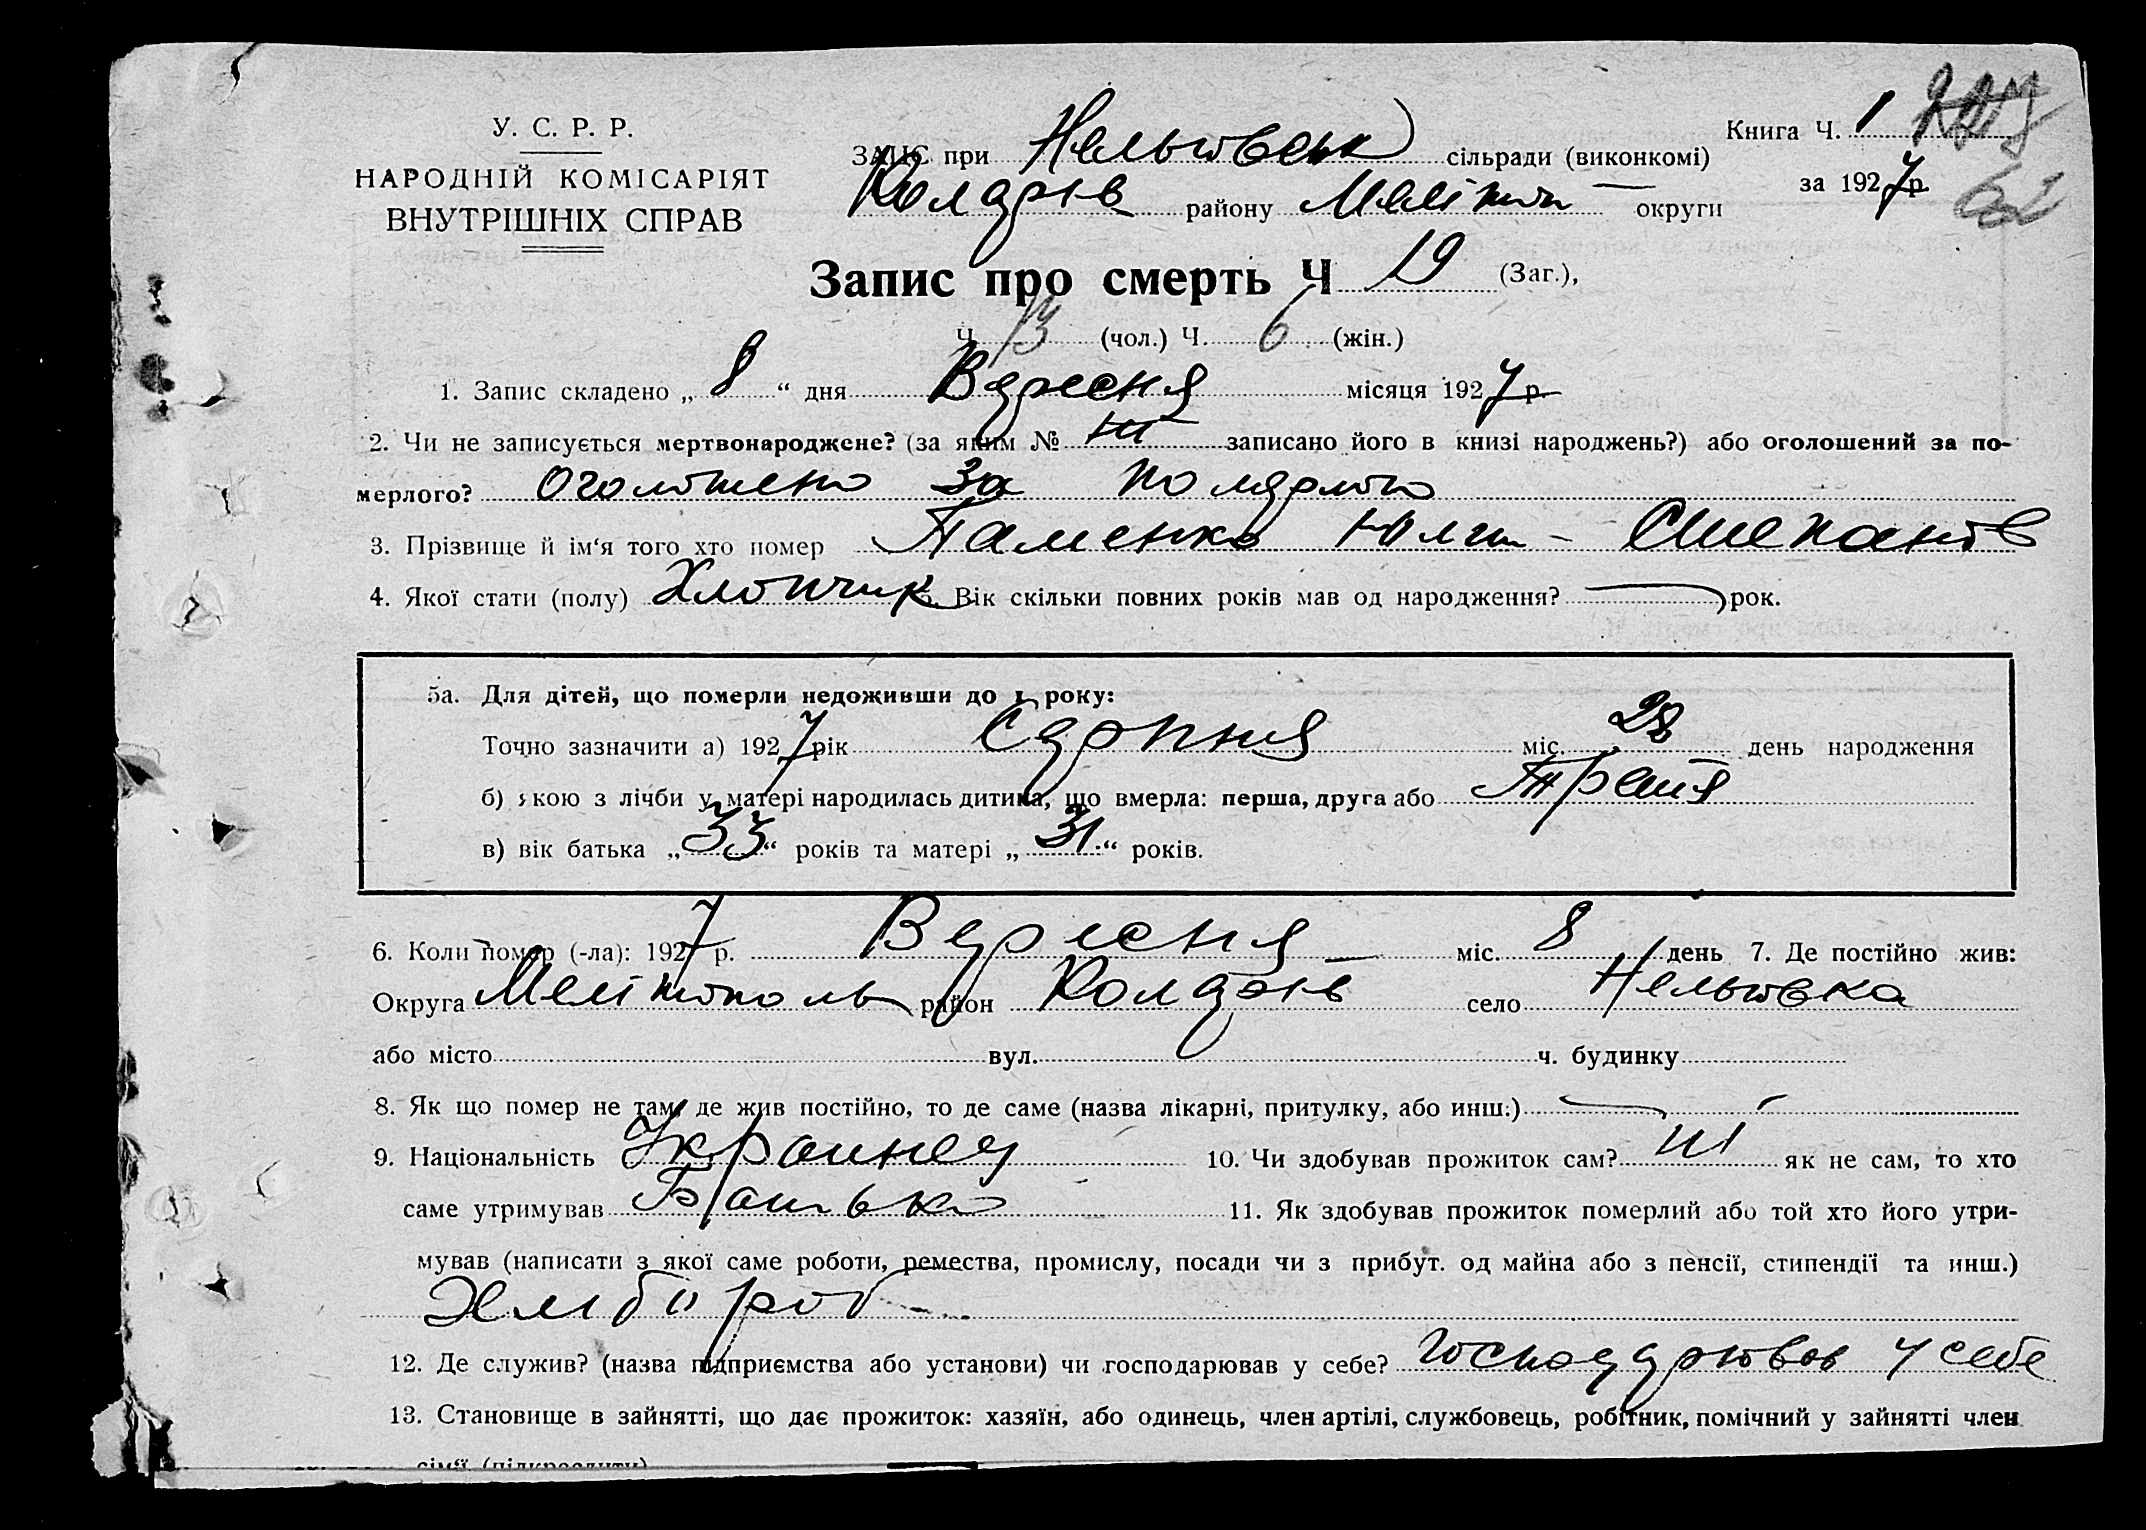 У. С. Р. Р.
НАРОДНІЙ КОМІСАРІЯТ
ВНУТРІШНІХ СПРАВ
Книга Ч. 1
ЗАПИС при Нельговськ сільради (виконкомі)
за 1927 р.
району Меліт округи
Запис про смерть Ч 19 (Заг.),
Ч 13 (чол.) Ч. 6 (жін.)
1. Запис складено „ 8 “ дня Вересня місяця 1927 р.
2. Чи не записується мертвонароджене? (за яким № ні записано його в книзі народжень?) або оголошений за по-
мерлого? Оголошено за померлого
3. Прізвище й ім‘я того хто помер
4. Якої стати (полу) Хлопчик 5. Вік скільки повних років мав од народження? рок.
5а. Для дітей, що померли недоживши до 1 року:
Точно зазначити а) 1927 рік Серпня міс. 28 день народження
б) якою з лічби у матері народилась дитина, що вмерла: перша, друга або Третя
в) вік батька „ 33 “ років та матері „ 31 “ років.
6. Коли помер (-ла): 1927 р. Вересня міс. 8 день 7. Де постійно жив:
Округа Мелітополь район село Нельговка
або місто вул. ч. будинку
8. Як що помер не там, де жив постійно, то де саме (назва лікарні, притулку, або инш.)
9. Національність Украинец 10. Чи здобував прожиток сам? ні як не сам, то хто
саме утримував Батько 11. Як здобував прожиток померлий або той хто його утри-
мував (написати з якої саме роботи, ремества, промислу, посади чи з прибут. од майна або з пенсії, стипендії та инш.)
Хлібороб
12. Де служив? (назва підприємства або установи) чи господарював у себе? Господарював у себе
13. Становище в зайнятті, що дає прожиток: хазяїн, або одинець, член артілі, службовець, робітник, помічний у зайнятті член
сім‘ї (підкреслити)